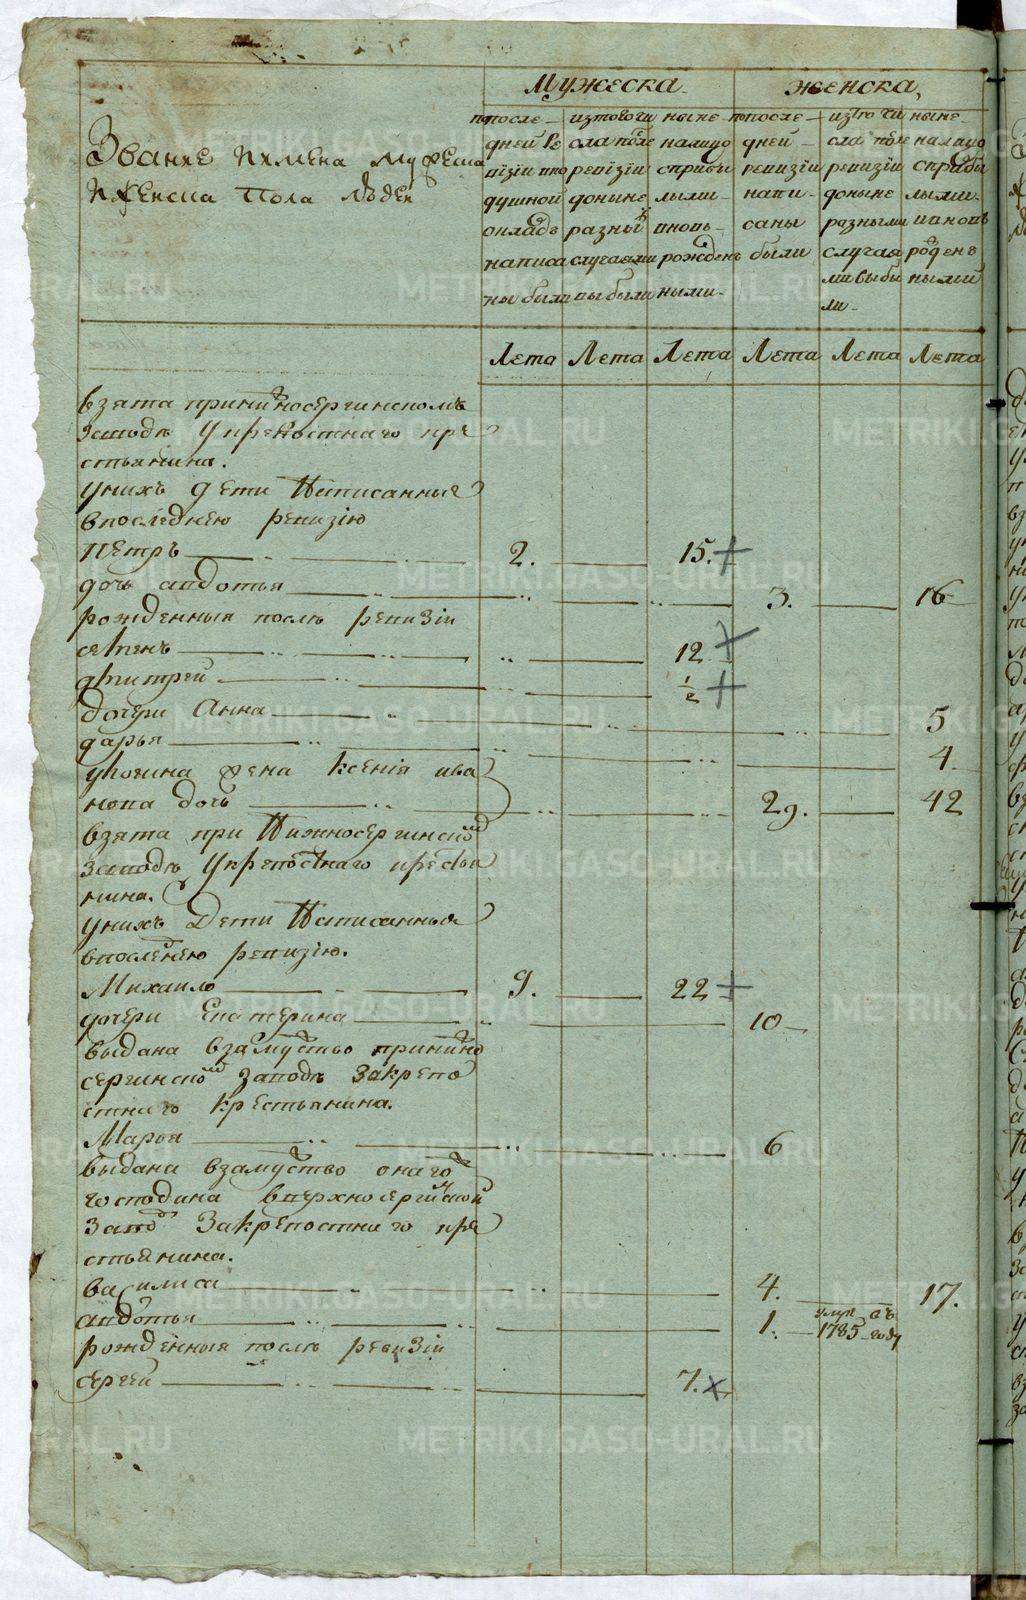 Мужеска
женска,
Званïе и имена мужеска
и женска пола людеи
по после-
дней ре
визïи в по
душной
окладъ
написа
ны были
из того чи
сла после
ревизïи
доныне
разны
случаями
выбыли
ныне
налицо
с прибы
лыми
вновь
рожден
ными.
по после-
дней
ревизïи
напи-
саны
были
из того чи
сла после
ревизïи
доныне
разными
случая
ми выбы
ли.
ныне
налицо
с прибы
лыми
и вновь
рожден
ными
Лета Лета Лета Лета Лета Лета
взята при нижносергинскомъ
заводѣ у крепостнаго кре
стьянина.
у нихъ дети написанныя
в последнею ревизïю
петръ 2. 15.
дочь авдотья 3. 16
рожденныя после ревизïи
семенъ 12
дмитрей 1/2
дочери Анна 5
дарья 4.
жена ксенïя ива
нова дочь 29. 42
взята при Нижносергинской
заводѣ у крепостнаго кресья
нина.
у нихъ Дети Написанныя
в последнею ревизïю.
Михаило 9. 22
дочери Екатерина 10
выдана в замужство при нижно
сергинской заводѣ за крепо
стнаго крестьянина.
Марья 6
выдана в замужство онаго
господина в верхносергинской
завод за крепостнаго кре
стьянина.
василиса 4. 17.
авдотья 1. умре въ 1785 году
рожденныя после ревизïи
сергей 7.
METRIKI.GASO-URAL.RU